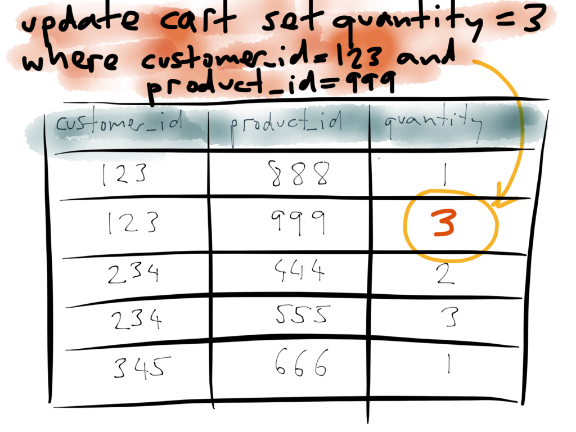 update cart set quantity = 3
where customer_id = 123 and
product_id = 999
customer_id product_id quantity
123 888 1
123 999 3
234 444 2
234 555 3
345 666 1